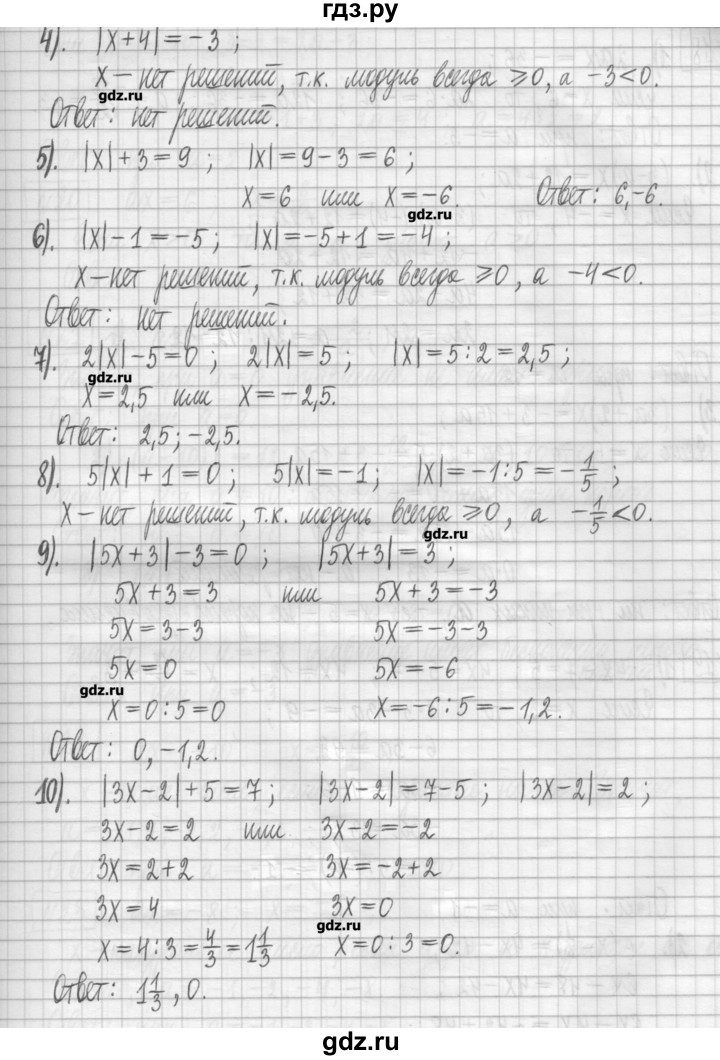 гдз.ру
4). |x+4|=-3 ;
x - нет решений, т.к. модуль всегда ⩾0, а -3<0.
gdz.ru
Ответ: нет решений.
5). |x|+3=9 ; |x|=9-3=6 ;
x=6 или x=-6. Ответ: 6,-6.
gdz.ru
6). |x|-1=-5 ; |x|=-5+1=-4 ;
x-нет решений, т.к. модуль всегда ⩾0, а -4<0.
Ответ: нет решений.
7). 2|x|-5=0 ; 2|x|=5 ; |x|=5:2=2,5 ;
gdz.ru
x=2,5 или x=-2,5.
Ответ: 2,5; -2,5.
8). 5|x|+1=0 ; 5|x|=-1 ; |x|=-1:5=-1/5 ;
x-нет решений, т.к. модуль всегда ⩾0, а -1/5<0.
gdz.ru
9). |5x+3|-3=0 ; |5x+3|=3 ;
5x+3=3 или 5x+3=-3
5x=3-3 5x=-3-3
5x=0 5x=-6
gdz.ru
x=0:5=0 x=-6:5=-1,2.
Ответ: 0, -1,2.
10). |3x-2|+5=7 ; |3x-2|=7-5 ; |3x-2|=2 ;
3x-2=2 или 3x-2=-2
3x=2+2 3x=-2+2
3x=4 3x=0
gdz.ru
x=4:3=4/3=1 1/3 x=0:3=0.
Ответ: 1 1/3, 0.
gdz.ru